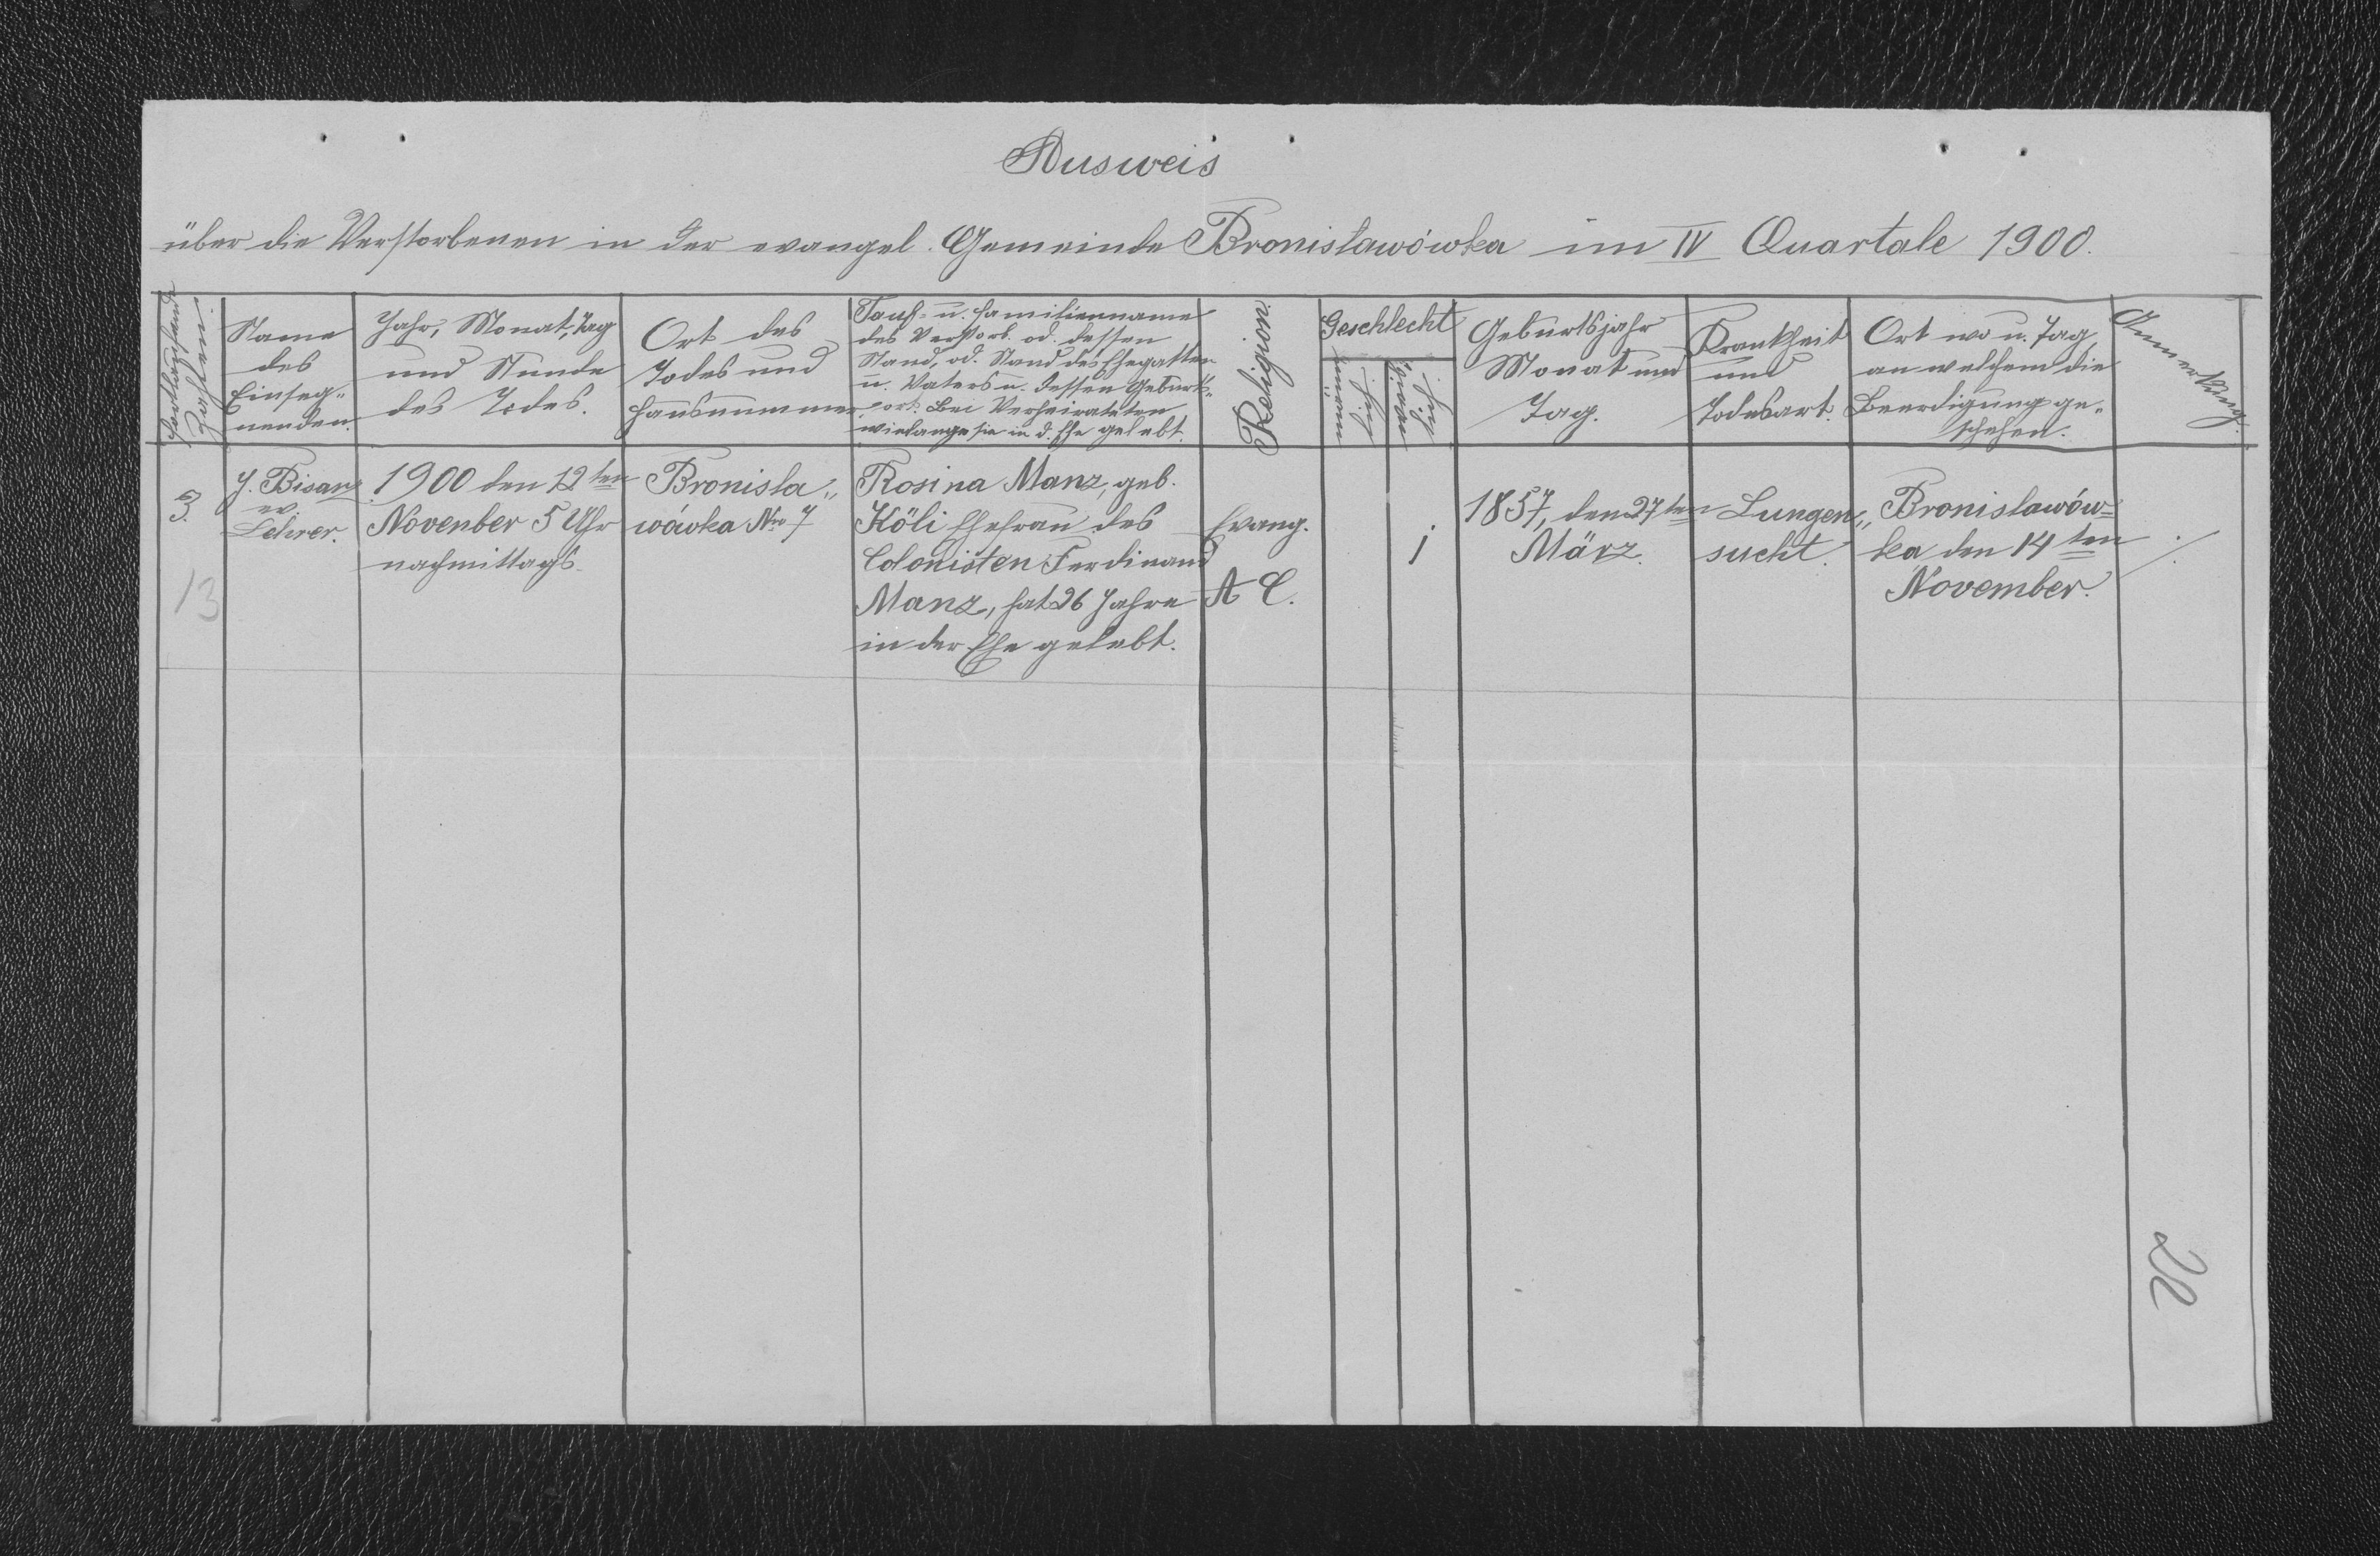 Ausweis
über die Verstorbenen in der evangel. Gemeinde Bronisławówka im IV Quartale 1900.
Fortlaufende
Zahlen.
Name
des
Einseg-
nenden.
Jahr, Monat, Tag
und Stunde
des Todes.
Ort des
Todes und
Hausnummer
Tauf- u. Familienname
des Verstorb. od. dessen
Stand, od. Stand des Ehegatten
u. Vaters u. dessen Geburts-
ort. Bei Verheirateten
wielange sie in d. Ehe gelebt.
Religion.
Geschlecht
männ
lich
weib
lich
Geburtsjahr
Monat und
Tag.
Krankheit
und
Todesart.
Ort wo u. Tag
an welchem die
Beerdigung ge-
schehen.
Anmerkung.
3.
13
J. Bisanz
ev.
Lehrer.
1900 den 12ten
November 5 Uhr
nachmittags
Bronisla-
wówka Nro 7
Rosina Manz, geb.
Köli Ehefrau des
Colonisten Ferdinand
Manz, hat 26 Jahre
in der Ehe gelebt.
Evang.
A C.
1
1857, den 27ten
März.
Lungen-
sucht.
Bronislawów-
ka den 14ten
November.